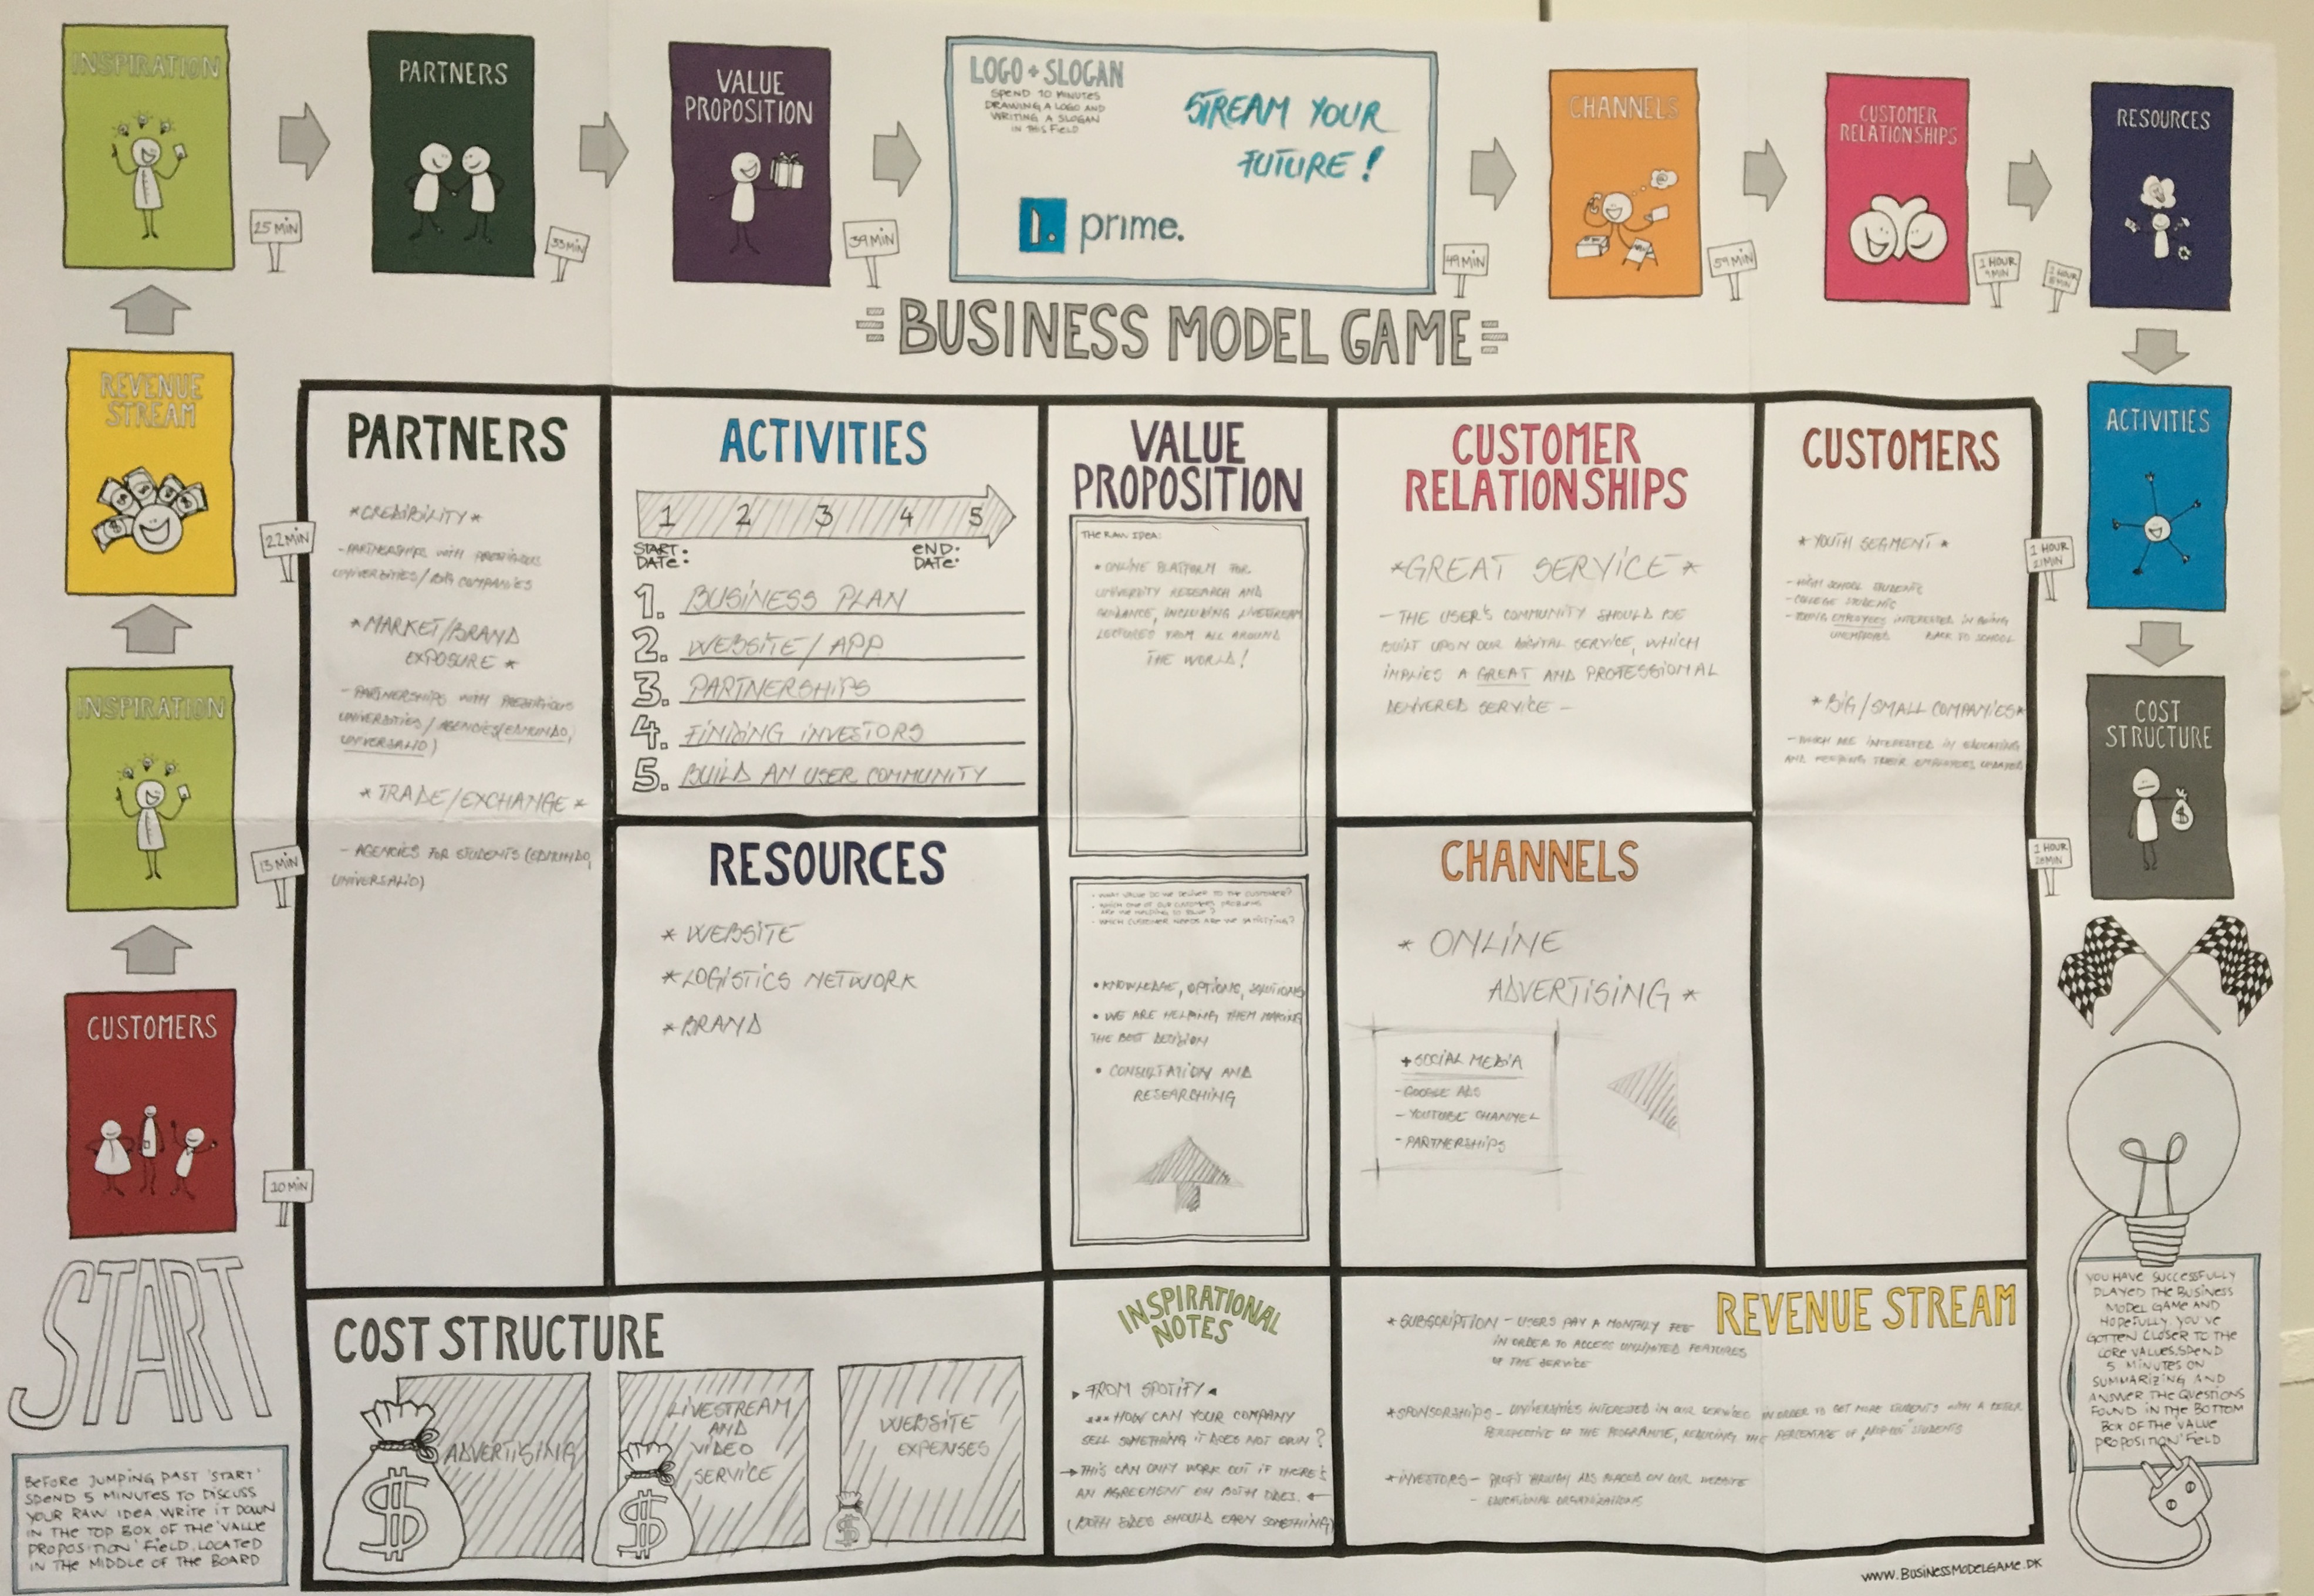 INSPIRATION
25 MIN
PARTNERS
33 MIN
VALUE
PROPOSITION
39 MIN
LOGO + SLOGAN
SPEND 10 MINUTES
DRAWING A LOGO AND
WRITING A SLOGAN
IN THIS FIELD
STREAM YOUR
FUTURE!
1. prime.
49 MIN
CHANNELS
59 MIN
CUSTOMER
RELATIONSHIPS
1 HOUR
9 MIN
1 HOUR
RESOURCES
BUSINESS MODEL GAME
REVENUE
STREAM
22 MIN
INSPIRATION
13 MIN
CUSTOMERS
10 MIN
START
BEFORE JUMPING PAST 'START'
SPEND 5 MINUTES TO DISCUSS
YOUR RAW IDEA. WRITE IT DOWN
IN THE TOP BOX OF THE 'VALUE
PROPOSITION' FIELD, LOCATED
IN THE MIDDLE OF THE BOARD
PARTNERS
*CREDIBILITY*
-PARTNERSHIPS WITH PRESTIGIOUS
UNIVERSITIES/BIG COMPANIES
*MARKET/BRAND
EXPOSURE*
-PARTNERSHIPS WITH PRESTIGIOUS
UNIVERSITIES/AGENCIES(EDMUNDO,
UNIVERSALIO)
*TRADE/EXCHANGE*
-AGENCIES FOR STUDENTS (EDMUNDO,
UNIVERSALIO)
ACTIVITIES
1 2 3 4 5
START DATE: END DATE:
1. BUSINESS PLAN
2. WEBSITE/APP
3. PARTNERSHIPS
4. FINDING INVESTORS
5. BUILD AN USER COMMUNITY
RESOURCES
*WEBSITE
*LOGISTICS NETWORK
*BRAND
VALUE
PROPOSITION
THE RAW IDEA:
*ONLINE PLATFORM FOR
UNIVERSITY RESEARCH AND
GUIDANCE, INCLUDING LIVESTREAM
LECTURES FROM ALL AROUND
THE WORLD!
• WHAT VALUE DO WE DELIVER TO THE CUSTOMER?
• WHICH ONE OF OUR CUSTOMERS PROBLEMS
ARE WE HELPING TO SOLVE?
• WHICH CUSTOMER NEEDS ARE WE SATISFYING?
• KNOWLEDGE, OPTIONS, SOLUTIONS
• WE ARE HELPING THEM MAKING
THE BEST DECISION
• CONSULTATION AND
RESEARCHING
CUSTOMER
RELATIONSHIPS
*GREAT SERVICE*
- THE USER'S COMMUNITY SHOULD BE
BUILT UPON OUR DIGITAL SERVICE, WHICH
IMPLIES A GREAT AND PROFESSIONAL
DELIVERED SERVICE -
CHANNELS
* ONLINE
ADVERTISING *
+SOCIAL MEDIA
-GOOGLE ADS
-YOUTUBE CHANNEL
-PARTNERSHIPS
CUSTOMERS
*YOUTH SEGMENT*
-HIGH SCHOOL STUDENTS
-COLLEGE STUDENTS
-YOUNG EMPLOYEES INTERESTED IN GOING
UNEMPLOYED BACK TO SCHOOL
*BIG/SMALL COMPANIES*
-WHICH ARE INTERESTED IN EDUCATING
AND KEEPING THEIR EMPLOYEES UPDATED
COST STRUCTURE
ADVERTISING
LIVESTREAM
AND
VIDEO
SERVICE
WEBSITE
EXPENSES
INSPIRATIONAL
NOTES
FROM SPOTIFY
... HOW CAN YOUR COMPANY
SELL SOMETHING IT DOES NOT OWN?
→THIS CAN ONLY WORK OUT IF THERE'S
AN AGREEMENT ON BOTH SIDES. ←
(BOTH SIDES SHOULD EARN SOMETHING)
REVENUE STREAM
*SUBSCRIPTION - USERS PAY A MONTHLY FEE
IN ORDER TO ACCESS UNLIMITED FEATURES
OF THE SERVICE
*SPONSORSHIPS - UNIVERSITIES INTERESTED IN OUR SERVICES IN ORDER TO GET MORE STUDENTS WITH A BETTER
PERSPECTIVE OF THE PROGRAMME, REDUCING THE PERCENTAGE OF "DROPOUT" STUDENTS
*INVESTORS - PROFIT THROUGH ADS PLACED ON OUR WEBSITE
- EDUCATIONAL ORGANIZATIONS
ACTIVITIES
1 HOUR
21 MIN
COST
STRUCTURE
1 HOUR
YOU HAVE SUCCESSFULLY
PLAYED THE BUSINESS
MODEL GAME AND
HOPEFULLY, YOU'VE
GOTTEN CLOSER TO THE
CORE VALUES. SPEND
5 MINUTES ON
SUMMARIZING AND
ANSWER THE QUESTIONS
FOUND IN THE BOTTOM
BOX OF THE 'VALUE
PROPOSITION' FIELD
WWW.BUSINESSMODELGAME.DK